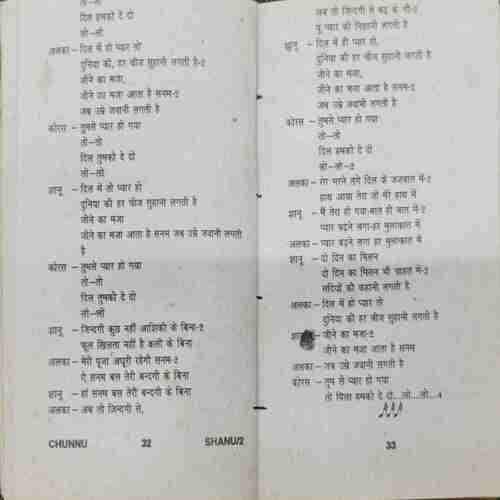 लो—लो
दिल हमको दे दो
लो—लो
अलका – दिल में हो प्यार तो
दुनिया की, हर चीज सुहानी लगती है-2
जीने का मजा,
जीने का मजा आता है सनम-2
जब उम्रे जवानी लगती है
कोरस – तुमसे प्यार हो गया
लो—लो
दिल तुमको दे दो
लो—लो
शानू – दिल में तो प्यार हो
दुनिया की हर चीज सुहानी लगती है
जीने का मजा
जीने का मजा आता है सनम जब उम्रे जवानी लगती
है
कोरस – तुमसे प्यार हो गया
लो—लो
दिल तुमको दे दो
लो—लो
शानू – जिन्दगी कुछ नहीं आशिकी के बिना-2
फूल खिलता नहीं है कली के बिना
अलका – मेरी पूजा अधूरी रहेगी सनम-2
ऐ सनम बस तेरी बन्दगी के बिना
शानू – हां सनम बस तेरी बन्दगी के बिना
अलका – अब तो जिन्दगी से,
CHUNNU 32 SHANU/2
अब तो जिन्दगी से बढ़ के भी-2
यू प्यार की निशानी लगती है
शानू – दिल में ही प्यार हो,
दुनिया की हर चीज सुहानी लगती है
जीने का मजा,
जीने का मजा आता है सनम-2
जब उम्रे जवानी लगती है
कोरस – तुमसे प्यार हो गया
लो—लो
दिल हमको दे दो
लो—लो—2
अलका – रंग भरने लगे दिल के जजबात में-2
हाथ आया तेरा जो मेरे हाथ में
शानू – मैं तेरा हो गया बात ही बात में-2
प्यार बढ़ने लगा हर मुलाकात में
अलका – प्यार बढ़ने लगा हर मुलाकात में
शानू – दो दिन का मिलन
दो दिन का मिलन भी चाहत में-2
सदियों की कहानी लगती है
अलका – दिल में हो प्यार तो
दुनिया की हर चीज सुहानी लगती है
शानू – जीने का मजा-2
जीने का मजा आता है सनम
अलका – जब उम्रे जवानी लगती है
कोरस – तुम से प्यार हो गया
लो दिल हमको दे दो...लो...लो...4
33